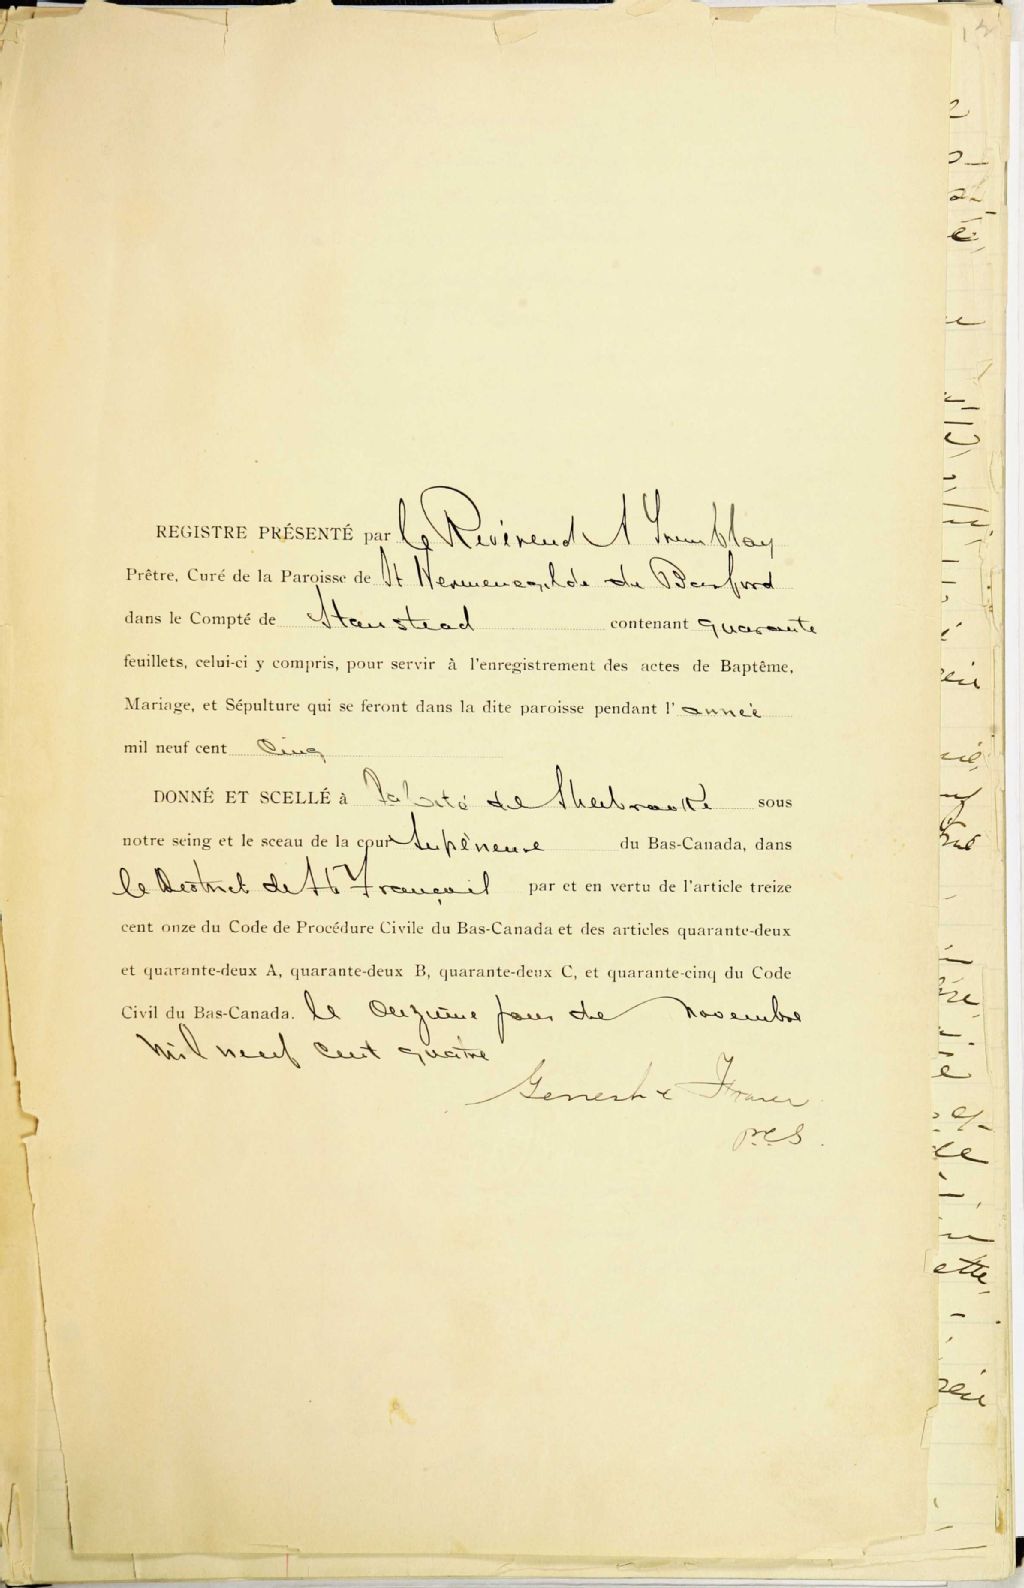 REGISTRE PRÉSENTÉ par le Révérend A Tremblay
Prêtre, Curé de la Paroisse de St Hermenegilde de Barford
dans le Compté de Stanstead contenant quarante
feuillets, celui-ci y compris, pour servir à l'enregistrement des actes de Baptême,
Mariage, et Sépulture qui se feront dans la dite paroisse pendant l'année
mil neuf cent cinq
DONNÉ ET SCELLÉ à la Cité de Sherbrooke sous
notre seing et le sceau de la cour Supérieure du Bas-Canada, dans
le District de St François par et en vertu de l'article treize
cent onze du Code de Procédure Civile du Bas-Canada et des articles quarante-deux
et quarante-deux A, quarante-deux B, quarante-deux C, et quarante-cinq du Code
Civil du Bas-Canada. le onzième jour de novembre
mil neuf cent quatre
Genest & Fraser
P.C.S.